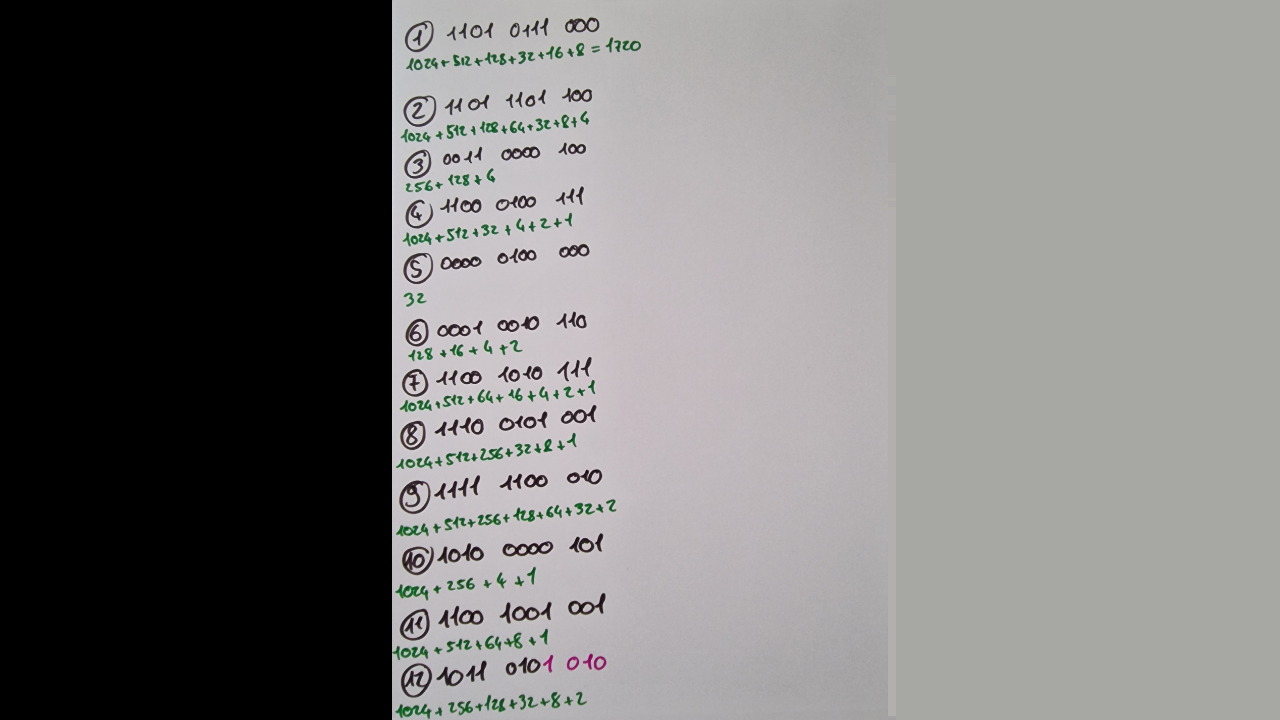 ① 1101 0111 000
1024+512+128+32+16+8=1720
② 1101 1101 100
1024+512+128+64+32+8+4
③ 0011 0000 100
256+128+4
④ 1100 0100 111
1024+512+32+4+2+1
⑤ 0000 0100 000
32
⑥ 0001 0010 110
128+16+4+2
⑦ 1100 1010 111
1024+512+64+16+4+2+1
⑧ 1110 0101 001
1024+512+256+32+8+1
⑨ 1111 1100 010
1024+512+256+128+64+32+2
⑩ 1010 0000 101
1024+256+4+1
⑪ 1100 1001 001
1024+512+64+8+1
⑫ 1011 0101 010
1024+256+128+32+8+2